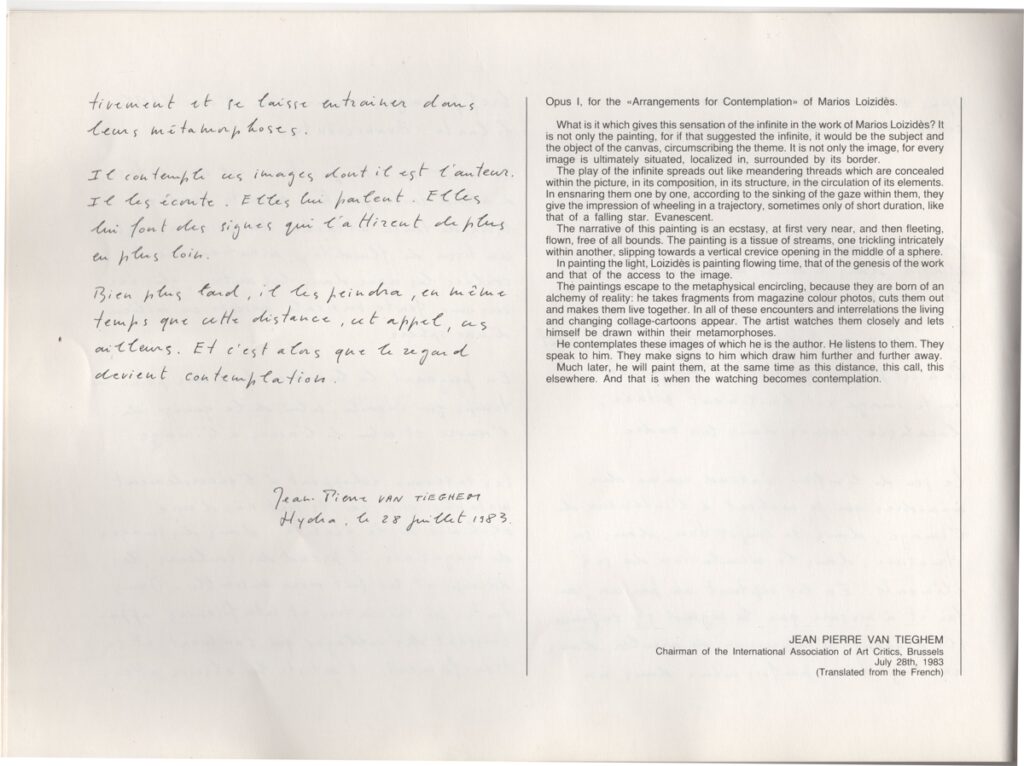 tivement et se laisse entraîner dans
leurs métamorphoses.
Il contemple ces images dont il est l'auteur.
Il les écoute. Elles lui parlent. Elles
lui font des signes qui l'attirent de plus
en plus loin.
Bien plus tard, il les peindra, en même
temps que cette distance, cet appel, ces
ailleurs. Et c'est alors que le regard
devient contemplation.
Jean-Pierre VAN TIEGHEM
Hydra, le 28 juillet 1983.
Opus I, for the «Arrangements for Contemplation» of Marios Loizidès.
What is it which gives this sensation of the infinite in the work of Marios Loizidès? It
is not only the painting, for if that suggested the infinite, it would be the subject and
the object of the canvas, circumscribing the theme. It is not only the image, for every
image is ultimately situated, localized in, surrounded by its border.
The play of the infinite spreads out like meandering threads which are concealed
within the picture, in its composition, in its structure, in the circulation of its elements.
In ensnaring them one by one, according to the sinking of the gaze within them, they
give the impression of wheeling in a trajectory, sometimes only of short duration, like
that of a falling star. Evanescent.
The narrative of this painting is an ecstasy, at first very near, and then fleeting,
flown, free of all bounds. The painting is a tissue of streams, one trickling intricately
within another, slipping towards a vertical crevice opening in the middle of a sphere.
In painting the light, Loizidès is painting flowing time, that of the genesis of the work
and that of the access to the image.
The paintings escape to the metaphysical encircling, because they are born of an
alchemy of reality: he takes fragments from magazine colour photos, cuts them out
and makes them live together. In all of these encounters and interrelations the living
and changing collage-cartoons appear. The artist watches them closely and lets
himself be drawn within their metamorphoses.
He contemplates these images of which he is the author. He listens to them. They
speak to him. They make signs to him which draw him further and further away.
Much later, he will paint them, at the same time as this distance, this call, this
elsewhere. And that is when the watching becomes contemplation.
JEAN PIERRE VAN TIEGHEM
Chairman of the International Association of Art Critics, Brussels
July 28th, 1983
(Translated from the French)